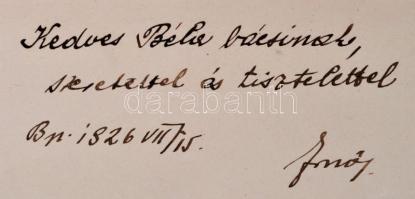 Kedves Béla bácsinak,
szeretettel és tisztelettel
darabanth
Bp. 1926 VII/15.
Ernő